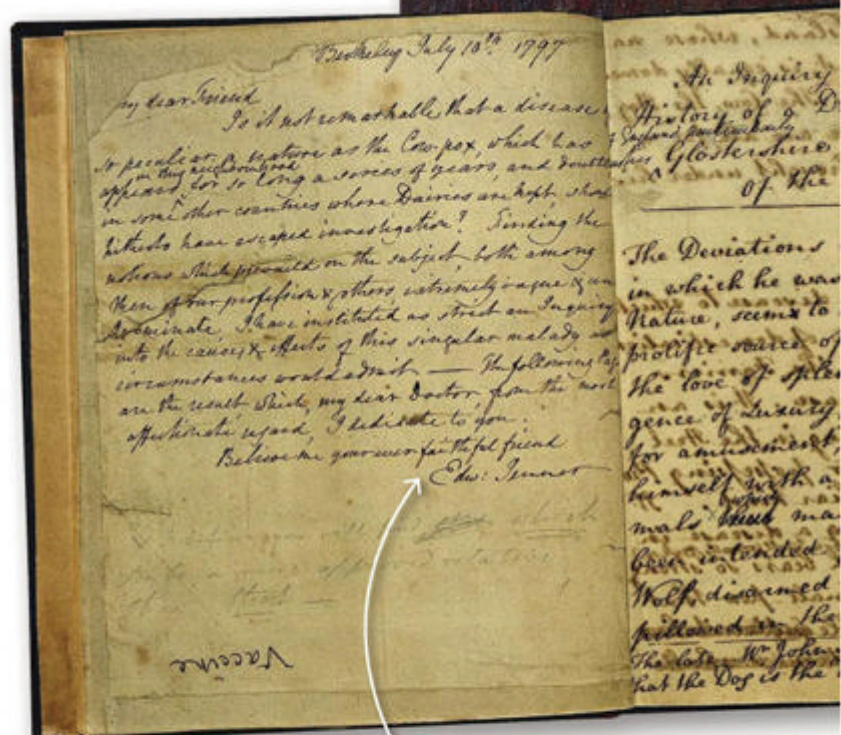 Berkeley July 10th. 1797
my dear Friend
Is it not remarkable that a disease
so peculiar in its nature as the Cow-pox, which has
in this neighbourhood
appeared for so long a series of years, and doubtless
in some other countries where Dairies are kept, should
hitherto have escaped investigation? Finding the
notions which prevail'd on the subject, both among
men of our profession & others extremely vague &
I have instituted as strict an Inquiry
into the causes & effects of this singular malady as
circumstances would admit — The following
are the result which, my dear Doctor from the most
affectionate regard, I dedicate to you.
Believe me your ever faithful friend
Edw: Jenner
which
Vaccine
An Inquiry
History of a D
England particularly
Glostershire
of the
The Deviations
in which he was
Nature, seems to
prolific source of
the love of splen
gence of Luxury
for amusement,
himself with a
mals which ma
been intended
Wolf disarmed
pillowed in the
The late Mr John
that the Dog is the